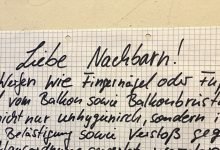 Liebe Nachbarn!
Wegen wie Fingernägel oder
vom Balkon sowie Balkonbrüst
nicht nur unhygienisch, sondern
Belästigung sowie Verstoß geg